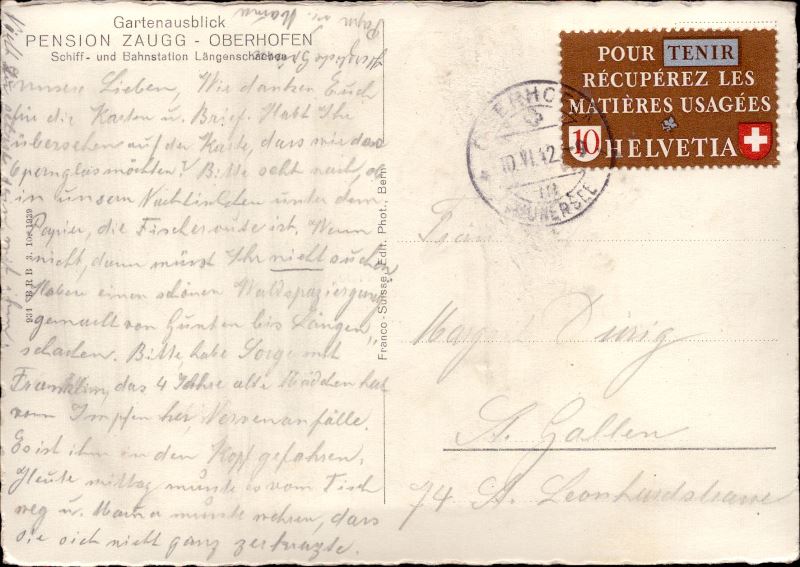 Gartenausblick
PENSION ZAUGG - OBERHOFEN
Schiff- und Bahnstation Längenschachen
Unsere Lieben, Wir danken Euch
für die Karten u. Brief. Habt Ihr
übersehen auf der Karte, dass wir das
Opernglas möchten? Bitte seht nach, ob
in unsern Nachttischen unter dem
Papier, die Fischerroute ist. Wenn
nicht, dann müsst Ihr nicht suchen
Haben einen schönen Waldspaziergang
gemacht von Gunten bis Längen„
schachen. Bitte habe Sorge mit
das 4 Jahre alte Mädchen hat
vom Impfen her Nervenanfälle.
Es ist ihm in den Kopf gefahren.
Heute mittag musste es vom Tisch
weg u. Mama musste wehren, dass
sie sich nicht ganz zerkratzte.
Herzliche Grüsse
Papa u. Mama
934 BRB 3. 10. 1939
Franco-Suisse, Edit. Phot., Bern
POUR TENIR
RÉCUPÉREZ LES
MATIÈRES USAGÉES
10 HELVETIA
OBERHOFEN
10.VI.42.
THUNERSEE
Margrit Dürig
St. Gallen
74 St. Leonhardstrasse